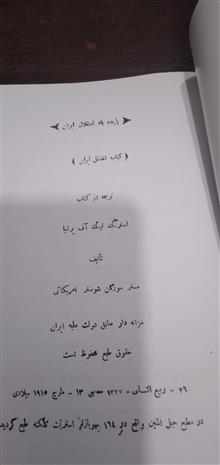 پاینده باد استقلال ایران
( کتاب اختناق ایران )
ترجمه از کتاب
استرنگلینگ آف پرشیا
تألیف
مستر مورگان شوستر امریکائی
خزانه دار سابق دولت علیه ایران
حقوق طبع محفوظ است
۲۶ - ربیع الثانی - ۱۳۳۳ مطابق ۱۳ - مارچ ۱۹۱۵ میلادی
در مطبع حبل المتین واقع در ۱٦٤ بهوبازار استریت کلکته طبع گردید